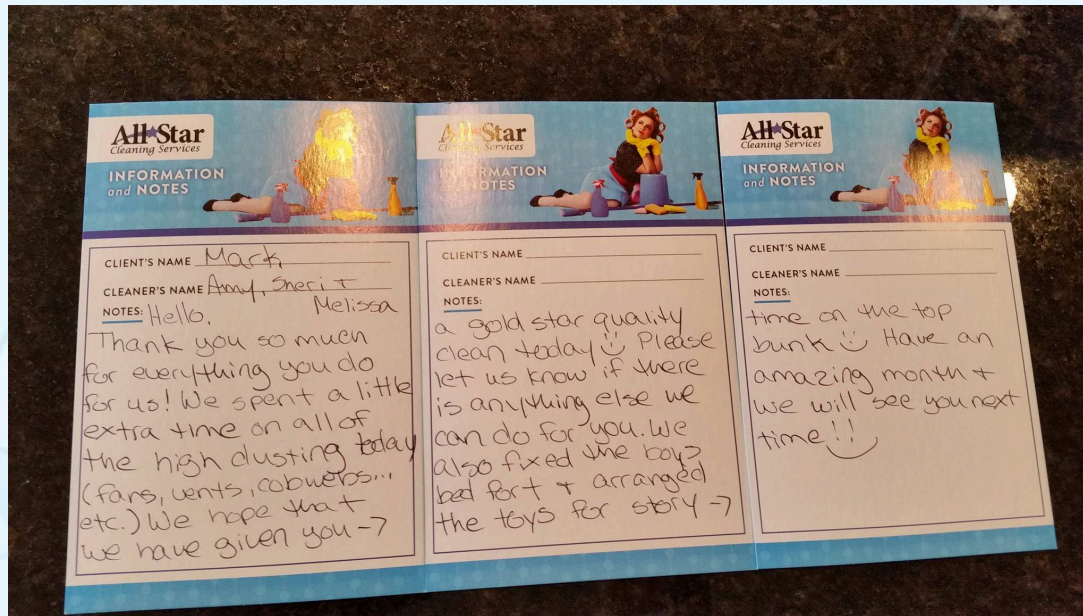 All★Star
Cleaning Services
INFORMATION
and NOTES
CLIENT'S NAME Mark
CLEANER'S NAME Amy, Sheri +
Melissa
NOTES: Hello,
Thank you so much
for everything you do
for us! We spent a little
extra time on all of
the high dusting today
(fans, vents, cobwebs...
etc.) We hope that
we have given you →
All★Star
Cleaning Services
INFORMATION
and NOTES
CLIENT'S NAME
CLEANER'S NAME
NOTES:
a gold star quality
clean today Please
let us know if there
is anything else we
can do for you. We
also fixed the boys
bed fort + arranged
the toys for story →
All★Star
Cleaning Services
INFORMATION
and NOTES
CLIENT'S NAME
CLEANER'S NAME
NOTES:
time on the top
bunk Have an
amazing month +
we will see you next
time!!